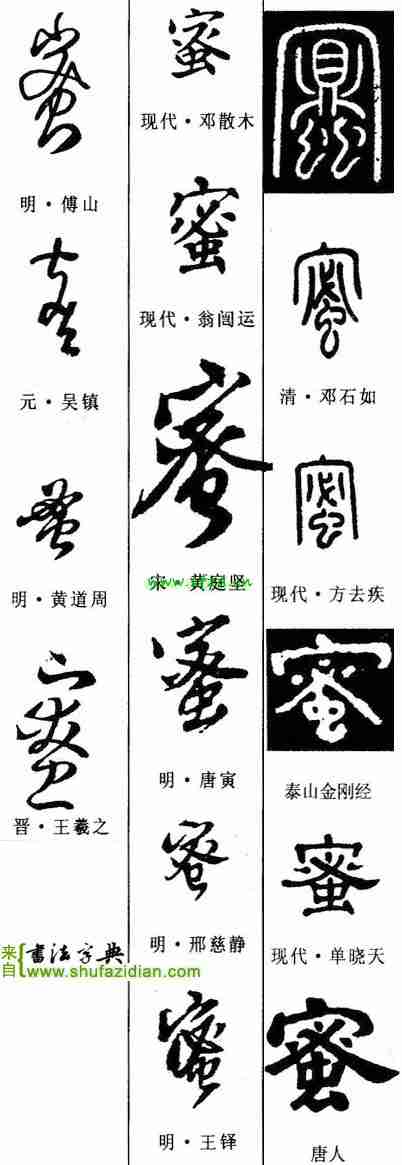 蜜
明·傅山
蜜
元·吴镇
蜜
明·黄道周
蜜
晋·王羲之
来自 书法字典
www.shufazidian.com
蜜
现代·邓散木
蜜
现代·翁闿运
蜜
宋·黄庭坚
蜜
明·唐寅
蜜
明·邢慈静
蜜
明·王铎
蜜
清·邓石如
蜜
现代·方去疾
蜜
泰山金刚经
蜜
现代·单晓天
蜜
唐人